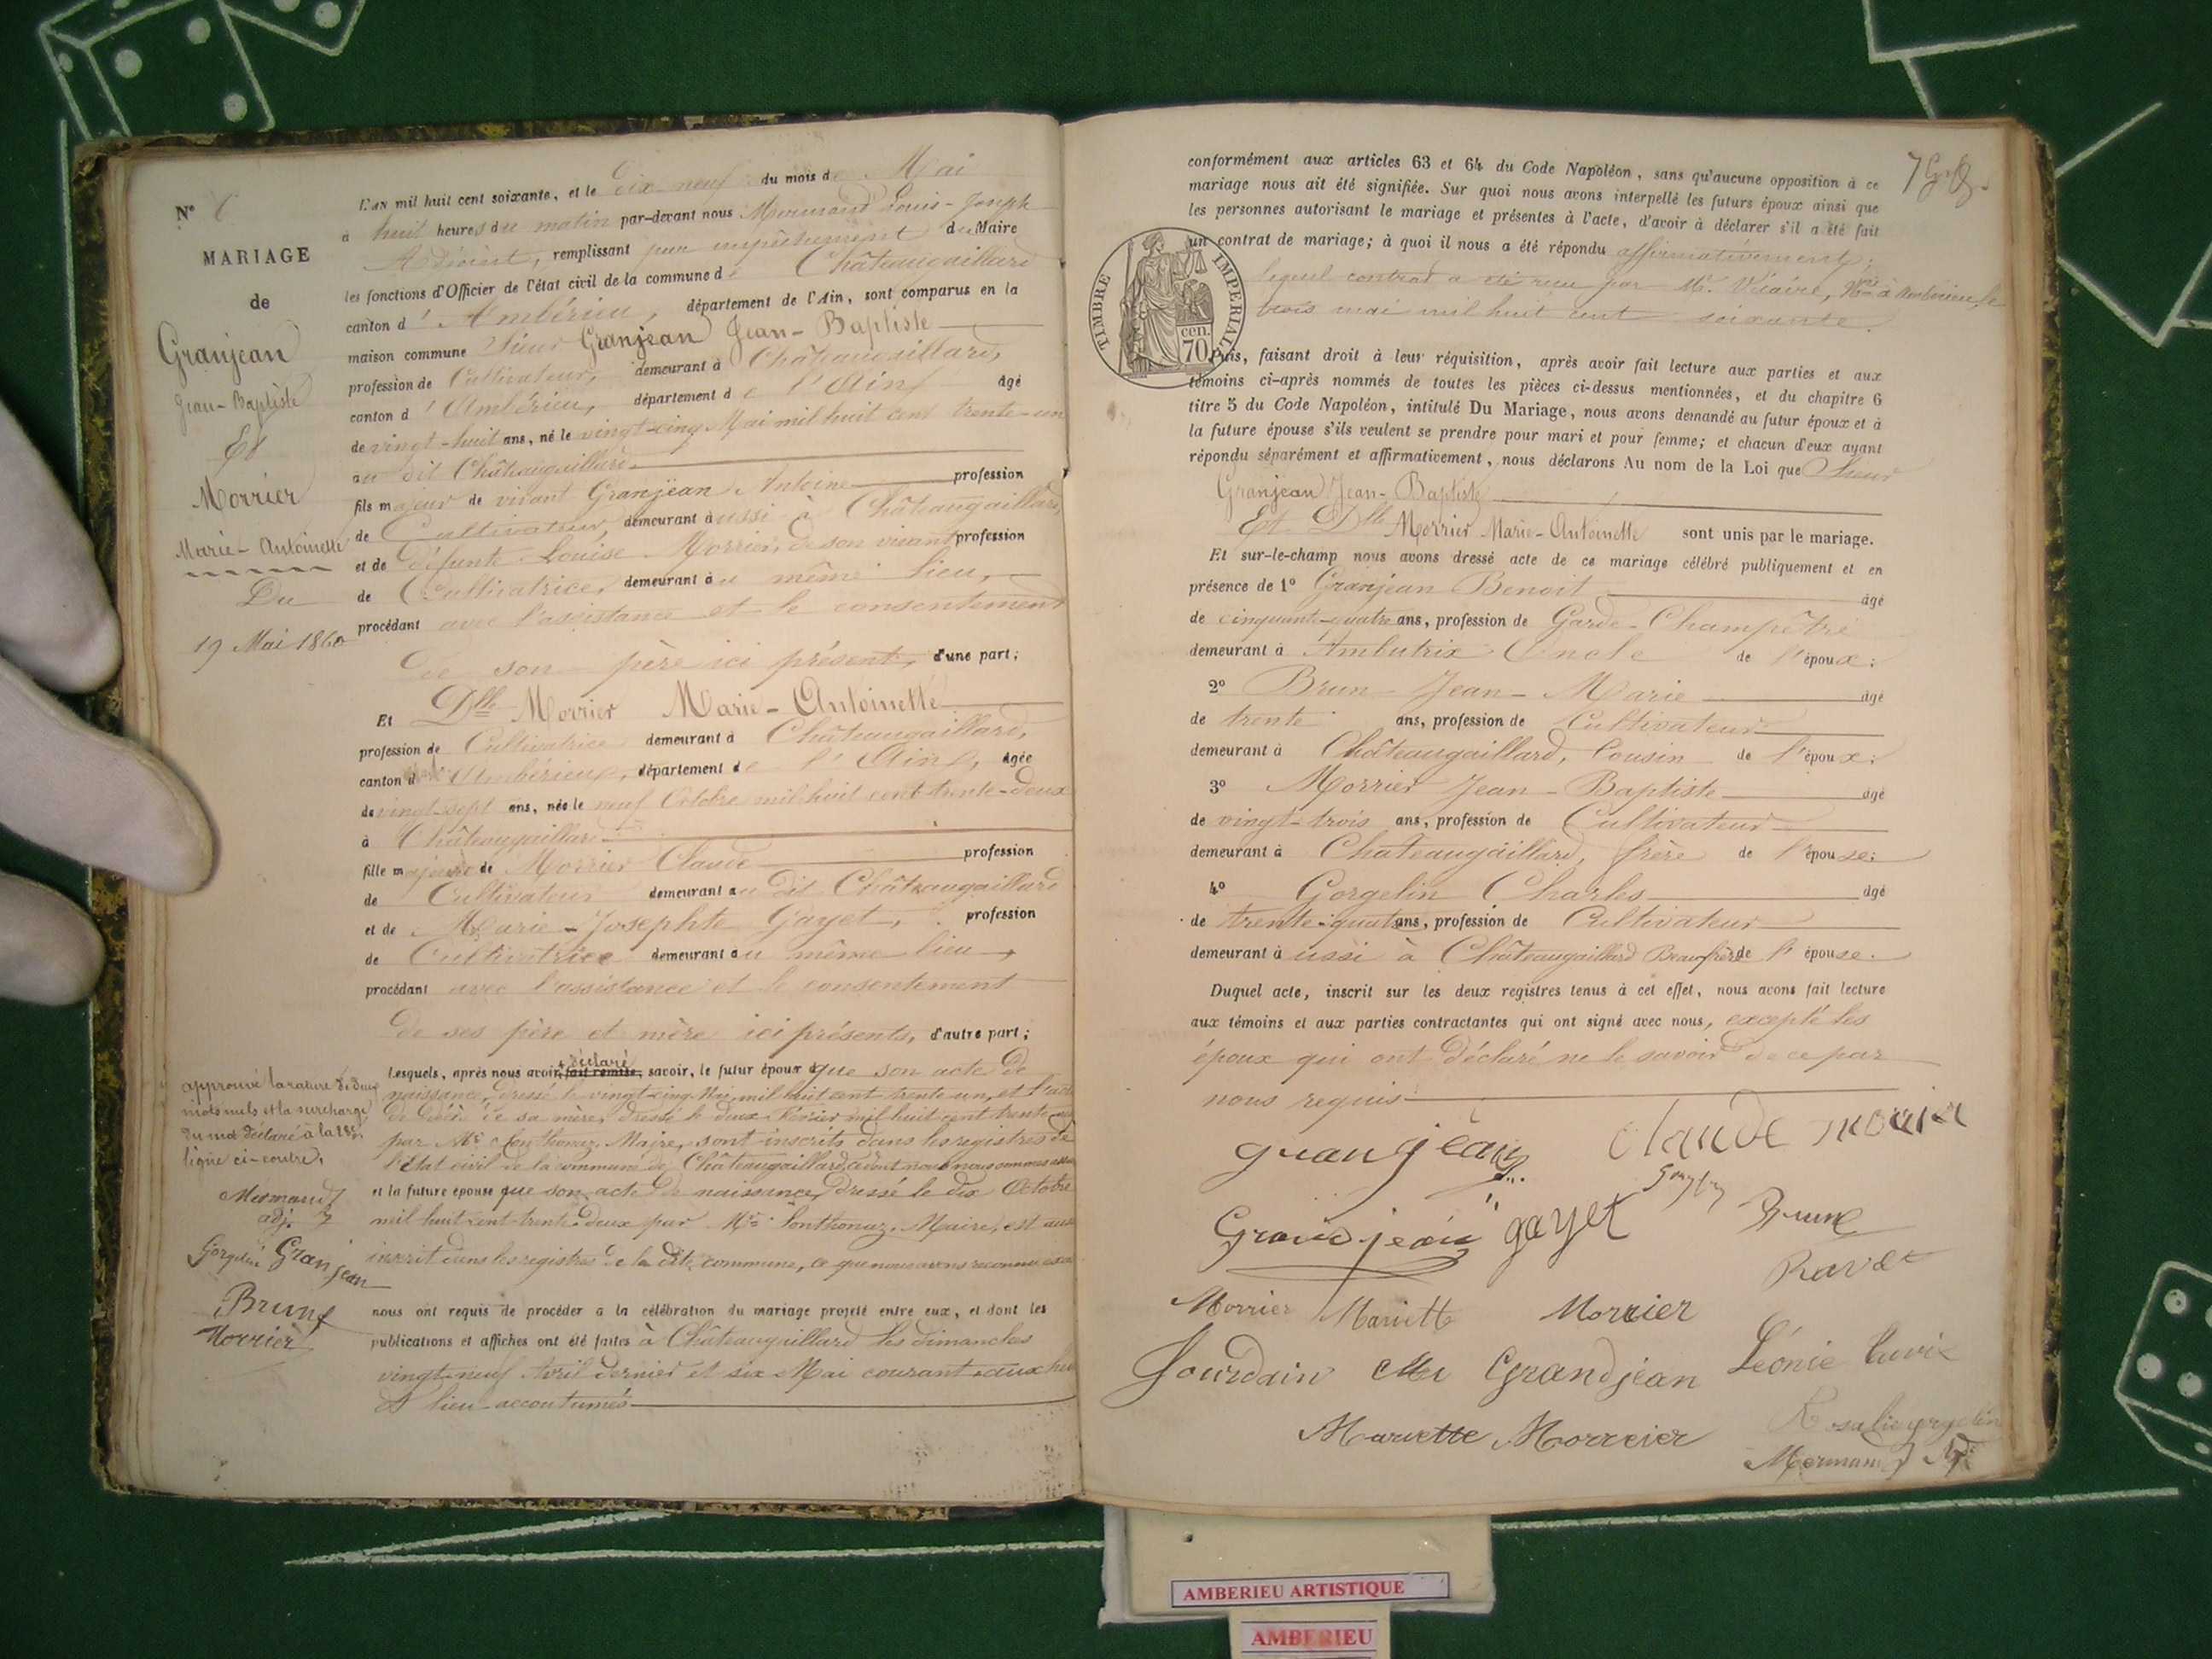 N° 6
MARIAGE
de
Granjean
Jean-Baptiste
Et
Morrier
Marie-Antoinette
Du
19 Mai 1860
L'AN mil huit cent soixante, et le dix neuf du mois de Mai
à huit heures du matin par-devant nous Mermand Louis-Joseph
Adjoint, remplissant par empêchement du Maire
les fonctions d'Officier de l'état civil de la commune de Châteaugaillard
canton d'Ambérieu, département de l'Ain, sont comparus en la
maison commune Sieur Granjean Jean-Baptiste
profession de Cultivateur, demeurant à Châteaugaillard,
canton d'Ambérieu, département de l'Ain, âgé
de vingt-huit ans, né le vingt-cinq Mai mil huit cent trente-un
au dit Châteaugaillard
fils majeur de vivant Granjean Antoine profession
de Cultivateur demeurant aussi à Châteaugaillard,
et de défunte Louise Morrier, de son vivant profession
de Cultivatrice, demeurant au même lieu,
procédant avec l'assistance et le consentement
de son père ici présent, d'une part;
Et Dlle Morrier Marie-Antoinette
profession de Cultivatrice demeurant à Châteaugaillard,
canton d'Ambérieux, département de l'Ain, âgée
de vingt-sept ans, née le neuf Octobre mil huit cent trente-deux
à Châteaugaillard
fille majeure de Morrier Claude profession
de Cultivateur demeurant au dit Châteaugaillard
et de Marie-Josephte Gayet, profession
de Cultivatrice demeurant au même lieu,
procédant avec l'assistance et le consentement
de ses père et mère ici présents, d'autre part;
déclaré
Lesquels, après nous avoir fait remise, savoir, le futur époux que son acte de
naissance, dressé le vingt-cinq Mai mil huit cent trente un, et l'acte
de décès de sa mère, dressé le deux Février mil huit cent trente
par Mr Maire, sont inscrits dans les registres de
l'Etat civil de la commune de Châteaugaillard, dont nous nous sommes
et la future épouse que son acte de naissance, dressé le dix Octobre
mil huit cent trente-deux par Mr Maire, est aussi
inscrit dans les registres de la dite commune, ce que nous avons reconnu
nous ont requis de procéder à la célébration du mariage projeté entre eux, et dont les
publications et affiches ont été faites à Châteaugaillard les dimanches
vingt-neuf Avril dernier et six Mai courant aux
et lieu accoutumés
approuvé la rature de deux
mots nuls et la surcharge
du mot déclaré à la
ligne ci-contre,
Mermand
adj.
Gorgelin Granjean
Brun
Morrier
conformément aux articles 63 et 64 du Code Napoléon, sans qu'aucune opposition à ce
mariage nous ait été signifiée. Sur quoi nous avons interpellé les futurs époux ainsi que
les personnes autorisant le mariage et présentes à l'acte, d'avoir à déclarer s'il a été fait
un contrat de mariage; à quoi il nous a été répondu affirmativement;
lequel contrat a été reçu par Me Vicaire, Nre à Ambérieu, le
trois mai mil huit cent soixante.
TIMBRE IMPERIAL
70 cen.
Puis, faisant droit à leur réquisition, après avoir fait lecture aux parties et aux
témoins ci-après nommés de toutes les pièces ci-dessus mentionnées, et du chapitre 6
titre 5 du Code Napoléon, intitulé Du Mariage, nous avons demandé au futur époux et à
la future épouse s'ils veulent se prendre pour mari et pour femme; et chacun d'eux ayant
répondu séparément et affirmativement, nous déclarons Au nom de la Loi que Sieur
Granjean Jean-Baptiste
Et Dlle Morrier Marie-Antoinette sont unis par le mariage.
Et sur-le-champ nous avons dressé acte de ce mariage célébré publiquement et en
présence de 1° Granjean Benoit âgé
de cinquante-quatre ans, profession de Garde-Champêtre
demeurant à Ambutrix Oncle de l'époux;
2° Brun Jean-Marie âgé
de trente ans, profession de Cultivateur
demeurant à Châteaugaillard, Cousin de l'époux;
3° Morrier Jean-Baptiste âgé
de vingt-trois ans, profession de Cultivateur
demeurant à Châteaugaillard, frère de l'épouse;
4° Gorgelin Charles âgé
de trente-quatre ans, profession de Cultivateur
demeurant aussi à Châteaugaillard Beaufrère de l'épouse.
Duquel acte, inscrit sur les deux registres tenus à cet effet, nous avons fait lecture
aux témoins et aux parties contractantes qui ont signé avec nous, excepté les
époux qui ont déclaré ne le savoir de ce par
nous requis
granjean claude morier
Grandjean gayet Brun
Ravet
Morrier Mariette Morrier
Jourdain Grandjean Léonie
Mariette Morreier Rosalie gorgelin
Mermand
AMBERIEU ARTISTIQUE
AMBERIEU